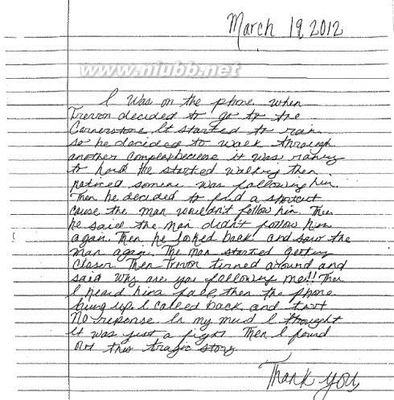 March 19, 2012
www.niubb.net
I was on the phone when
Trevon decided to go to the
Cornerstore. It started to rain
so he decided to walk through
another complex because it was raining
to hard. He started walking then
noticed someone was following him.
Then he decided to find a shortcut
cause the man wouldn't follow him. Then
he said the man didn't follow him
again. Then he looked back and saw the
man again. The man started getting
closer. Then Trevon turned around and
said Why are you following me!! Then
I heard him fall, then the phone
hung up. I called back and text
No response. In my mind I thought
it was just a fight. Then I found
out this tragic story
Thank you,